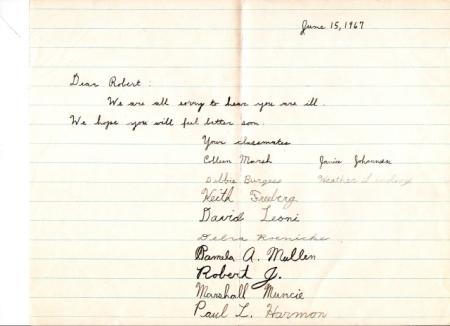 June 15, 1967
Dear Robert:
We are all sorry to hear you are ill.
We hope you will feel better soon.
Your classmates
Colleen Marsh Janice
Debbie Burgess Heather Lindsay
Keith Freeberg
David Leoni
Debra Roenicke
Pamela A. Mullen
Robert J.
Marshall Muncie
Paul L. Harmon